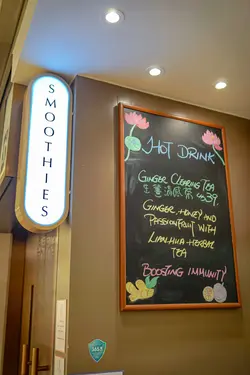 SMOOTHIES
HOT DRINK
GINGER CLEARING TEA
GINGER, HONEY AND
PASSIONFRUIT WITH
LIANHUA HERBAL
TEA
BOOSTING IMMUNITY